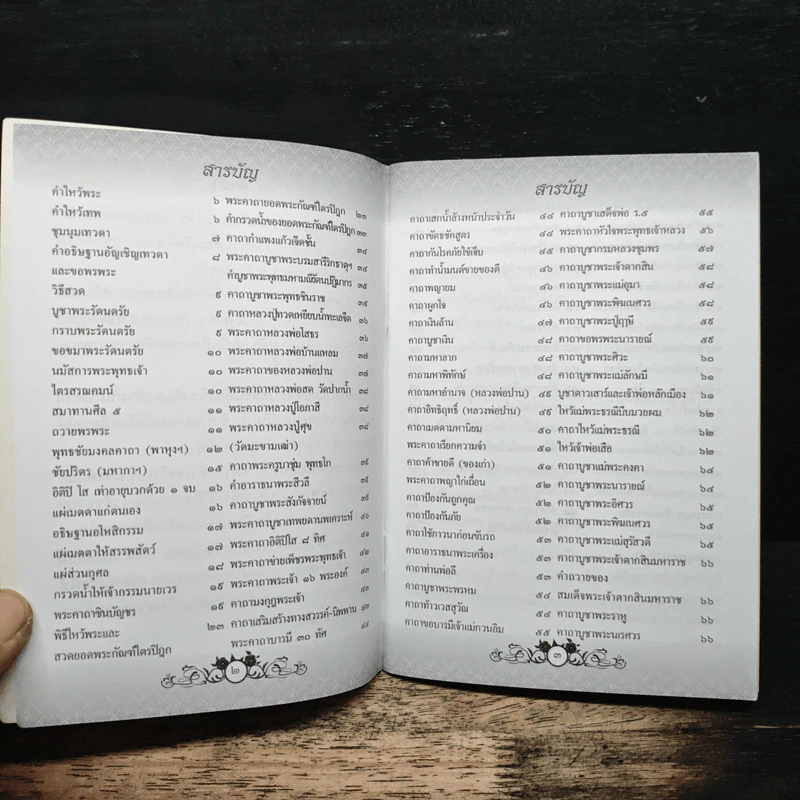 สารบัญ
คำไหว้พระ ๖
คำไหว้เทพ ๖
ชุมนุมเทวดา ๗
คำอธิษฐานอัญเชิญเทวดา ๘
และขอพรพระ
วิธีสวด ๙
บูชาพระรัตนตรัย ๙
กราบพระรัตนตรัย ๙
ขอขมาพระรัตนตรัย ๑๐
นมัสการพระพุทธเจ้า ๑๐
ไตรสรณคมน์ ๑๐
สมาทานศีล ๕ ๑๑
ถวายพรพระ ๑๑
พุทธชัยมงคลคาถา (พาหุงฯ) ๑๒
ชัยปริตร (มหากาฯ) ๑๕
อิติปิ โส เท่าอายุบวกด้วย ๑ จบ ๑๖
แผ่เมตตาแก่ตนเอง ๑๖
อธิษฐานอโหสิกรรม ๑๗
แผ่เมตตาให้สรรพสัตว์ ๑๗
แผ่ส่วนกุศล ๑๘
กรวดน้ำให้เจ้ากรรมนายเวร ๑๙
พระคาถาชินบัญชร ๑๙
พิธีไหว้พระและ ๒๓
สวดยอดพระกัณฑ์ไตรปิฎก
พระคาถายอดพระกัณฑ์ไตรปิฎก ๒๓
คำกรวดน้ำของยอดพระกัณฑ์ไตรปิฎก ๓๓
คาถากำแพงแก้วเจ็ดชั้น ๓๔
พระคาถาบูชาพระบรมสารีริกธาตุฯ ๓๔
คำบูชาพระพุทธมหามณีรัตนปฏิมากร ๓๕
คาถาบูชาพระพุทธชินราช ๓๕
คาถาหลวงปู่ทวดเหยียบน้ำทะเลจืด ๓๖
พระคาถาหลวงพ่อโสธร ๓๖
พระคาถาหลวงพ่อบ้านแหลม ๓๗
พระคาถาของหลวงพ่อปาน ๓๗
พระคาถาหลวงพ่อสด วัดปากน้ำ ๓๘
พระคาถาหลวงปู่โอภาสี ๓๘
พระคาถาหลวงปู่ศุข ๓๘
(วัดมะขามเฒ่า)
คาถาพระครูบาชุ่ม พุทธโก ๓๙
คำอาราธนาพระสิวลี ๓๙
คาถาบูชาพระสังกัจจายน์ ๓๙
พระคาถาบูชาเทพยดานพเคราะห์
พระคาถาอิติปิโส ๘ ทิศ
พระคาถาข่ายเพ็ชรพระพุทธเจ้า ๔๒
พระคาถาพระเจ้า ๑๖ พระองค์ ๔๓
คาถามงกุฎพระเจ้า ๔๓
คาถาเสริมสร้างทางสวรรค์-นิพพาน ๔๓
พระคาถาบารมี ๓๐ ทัศ ๔๔
๒
สารบัญ
คาถาเสกน้ำล้างหน้าประจำวัน ๔๔
คาถาขัดธชัคสูตร ๔๔
คาถากันโรคภัยไข้เจ็บ ๔๕
คาถาทำน้ำมนต์ขายของดี ๔๕
คาถาพญายม ๔๖
คาถาผูกใจ ๔๖
คาถาเงินล้าน ๔๗
คาถาบูชาเงิน ๔๘
คาถามหาลาภ ๔๘
คาถามหาพิทักษ์ ๔๘
คาถามหาอำนาจ (หลวงพ่อปาน) ๔๙
คาถาอิทธิฤทธิ์ (หลวงพ่อปาน) ๔๙
คาถาเมตตามหานิยม ๕๐
พระคาถาเรียกความจำ ๕๑
คาถาค้าขายดี (ของเก่า) ๕๑
พระคาถาพญาไก่เถื่อน ๕๑
คาถาป้องกันถูกคุณ ๕๒
คาถาป้องกันภัย ๕๒
คาถาใช้ภาวนาก่อนขับรถ ๕๒
คาถาอาราธนาพระเครื่อง ๕๓
คาถาท่านพ่อลี ๕๓
คาถาบูชาพระพรหม ๕๔
คาถาท้าวเวสสุวัณ ๕๔
คาถาขอบารมีเจ้าแม่กวนอิม ๕๕
คาถาบูชาเสด็จพ่อ ร.๕ ๕๕
พระคาถาหัวใจพระพุทธเจ้าหลวง ๕๖
คาถาบูชากรมหลวงชุมพร ๕๗
คาถาบูชาพระเจ้าตากสิน ๕๘
คาถาบูชาพระแม่อุมา ๕๘
คาถาบูชาพระพิฆเนศวร ๕๘
คาถาบูชาพระปู่ฤๅษี ๕๙
คาถาขอพรพระนารายณ์ ๕๙
คาถาบูชาพระศิวะ ๖๐
คาถาบูชาพระแม่ลักษมี ๖๑
บูชาดาวเสาร์และเจ้าพ่อหลักเมือง ๖๑
ไหว้แม่พระธรณีบีบมวยผม ๖๒
คาถาไหว้แม่พระธรณี ๖๒
ไหว้เจ้าพ่อเสือ ๖๒
คาถาบูชาแม่พระคงคา ๖๓
คาถาบูชาพระนารายณ์ ๖๔
คาถาบูชาพระอิศวร ๖๕
คาถาบูชาพระพิฆเนศวร ๖๕
คาถาบูชาพระแม่สุรัสวดี ๖๕
คาถาบูชาพระเจ้าตากสินมหาราช
คำถวายของ
สมเด็จพระเจ้าตากสินมหาราช ๖๖
คาถาบูชาพระราหู ๖๖
คาถาบูชาพระนเรศวร ๖๖
๓